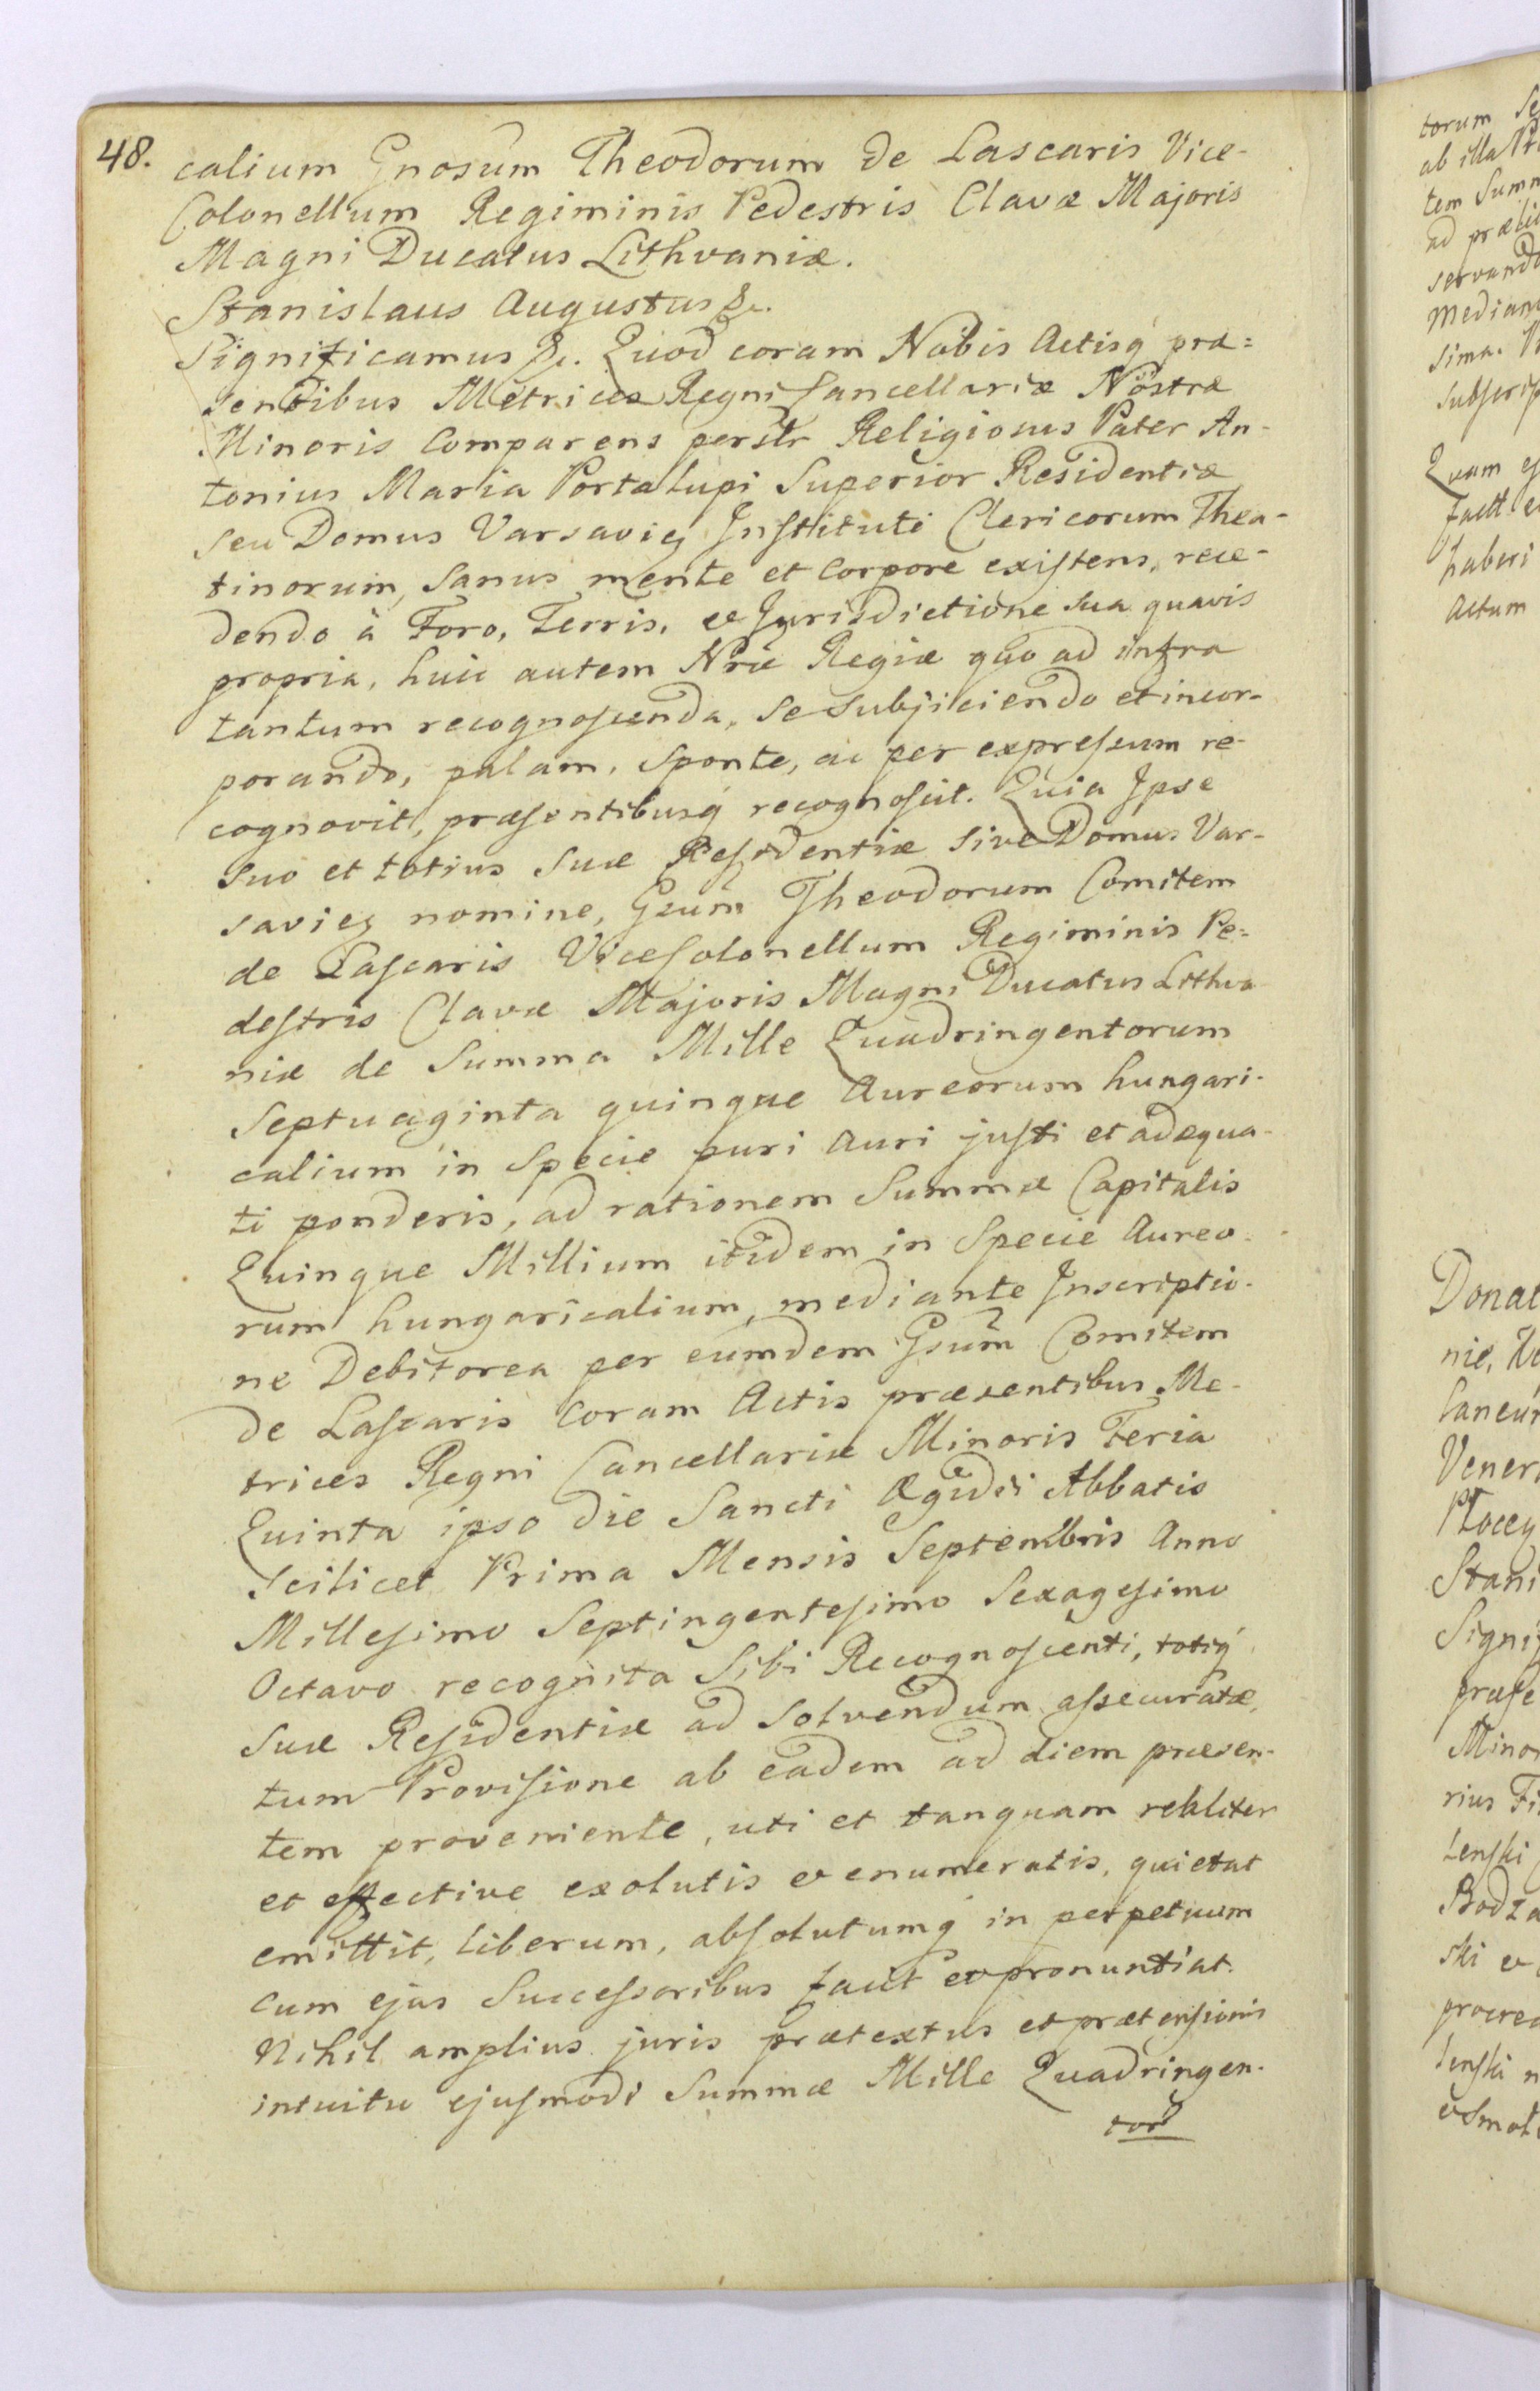 48.
calium Gnosum Theodorum de Lascaris Vice-
Colonellum Regiminis Pedestris Clavæ Majoris
Magni Ducatus Lithvaniæ.
Stanislaus Augustus &c.
Significamus &c. Quod coram Nobis Actisq́ præ=
sentibus Metrices Regni Cancellariæ Nostræ
Minoris Comparens persltr Religiosus Pater An-
tonius Maria Portalupi Superior Residentiæ
seu Domus Varsavieṉ Instituti Clericorum Thea-
tinorum, Sanus mente et Corpore existens, rece-
dendo à Foro, Terris, et Jurisdictione sua quavis
propria, huic autem Nræ Regiæ quo ad infra
tantum recognoscenda, se subjiciendo et incor-
porando, palam, sponte, ac per expressum re-
cognovit, præsentibusq́ recognoscit. Quia Ipse
suo et totius suæ Residentiæ sive Domus Var-
savieṉ nomine, Gsum Theodorum Comitem
de Lascaris ViceColonellum Regiminis Pe=
destris Clavæ Majoris Magni Ducatus Lithva
niæ de Summa Mille Quadringentorum
Septuaginta quinque Aureorum hungari-
calium in Specie puri Auri justi et adæqua-
ti ponderis, ad rationem Summæ Capitalis
Quinque Millium itidem in Specie Aureo-
rum hungaricalium, mediante Inscriptio-
ne Debitorea per eumdem Gsum Comitem
de Lascaris Coram Actis præsentibus Me-
trices Regni Cancellariæ Minoris Feria
Quinta ipso die Sancti Ægidii Abbatis
scilicet Prima Mensis Septembris Anno
Millesimo Septingentesimo Sexagesimo
Octavo recognita Sibi Recognoscenti, totiq́
suæ Residentiæ ad solvendum assecuratæ,
tum Provisione ab eadem ad diem præsen-
tem proveniente, uti et tanquam realiter
et effective exolutis et enumeratis, quietat
emittit, liberum, absolutumq́ in perpetuum
cum ejus Successoribus facit et pronuntiat.
Nihil amplius juris prætextus et prætensionis
intuitu ejusmodi Summæ Mille Quadringen-
tor
torum
ab illa
tem Summ
ad
servand
median
sima.
subscrip
Quam
factt
haberi
Actum
Donat
nie,
Vener
Stani
Signif
præse
Minor
rius
lenski
Bodza
ski et
procrea
lenski